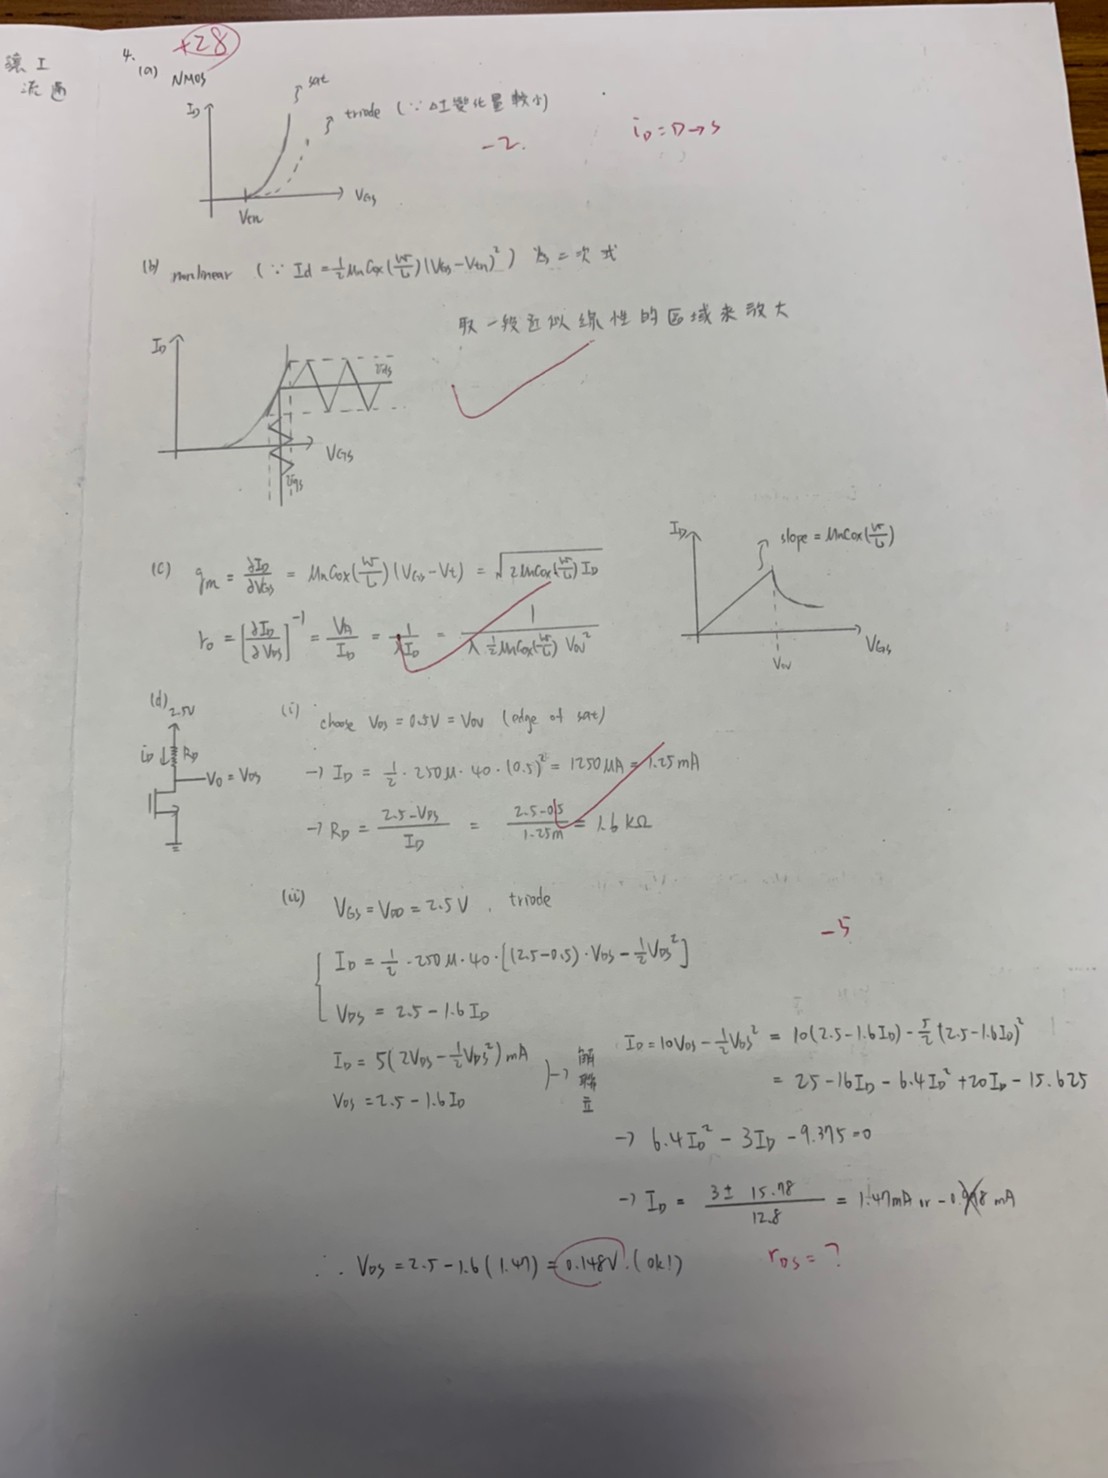 鑲工
流通
4.
+28
(a) NMOS
I_D
sat
triode (∵ ΔI變化量較小)
-2.
i_D = D→S
V_GS
V_tn
(b) nonlinear (∵ Id = ½ μnCox(W/L)(V_GS-V_tn)²) 為二次式
取一段近似線性的區域來放大
I_D
i_ds
V_GS
v_gs
(c) g_m = ∂I_D/∂V_GS = μnCox(W/L)(V_GS-V_t) = √(2μnCox(W/L)I_D)
r_o = [∂I_D/∂V_DS]⁻¹ = V_A/I_D = 1/(λI_D) = 1/(λ ½ μnCox(W/L) V_ov²)
I_D
slope = μnCox(W/L)
V_GS
V_ov
(d)
2.5V
i_D ↓ R_D
V_o = V_DS
(i) choose V_DS = 0.5V = V_OV (edge of sat)
→ I_D = ½ · 250μ · 40 · (0.5)² = 1250μA = 1.25mA
→ R_D = (2.5-V_DS)/I_D = (2.5-0.5)/1.25m = 1.6 kΩ
(ii) V_GS = V_DD = 2.5V , triode
-5
I_D = ½ · 250μ · 40 · [(2.5-0.5) · V_DS - ½V_DS²]
V_DS = 2.5 - 1.6 I_D
I_D = 5(2V_DS - ½V_DS²) mA
V_DS = 2.5 - 1.6I_D
→ 解聯立
I_D = 10V_DS - ½V_DS² = 10(2.5-1.6I_D) - 5/2 (2.5-1.6I_D)²
= 25 - 16I_D - 6.4I_D² + 20I_D - 15.625
→ 6.4I_D² - 3I_D - 9.375 = 0
→ I_D = (3 ± 15.78)/12.8 = 1.47mA or mA
∴ V_DS = 2.5 - 1.6(1.47) = 0.148V. (ok!)
r_DS = ?